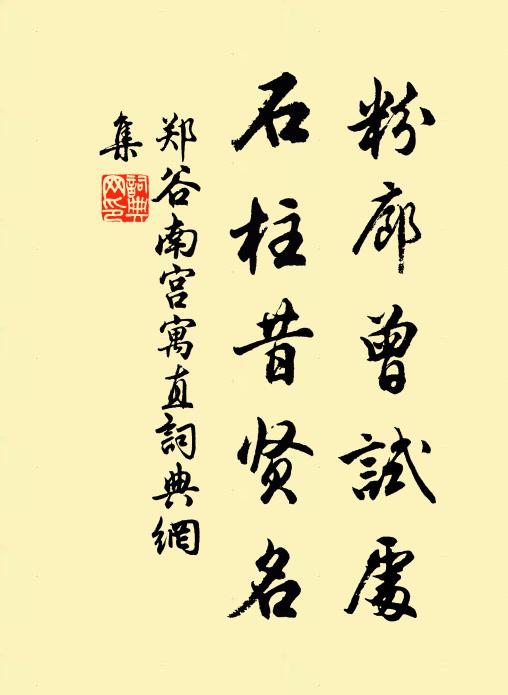 粉廊曾試處
石柱昔贤名
郑谷南宫寓直詞典網
集
詞典
网印